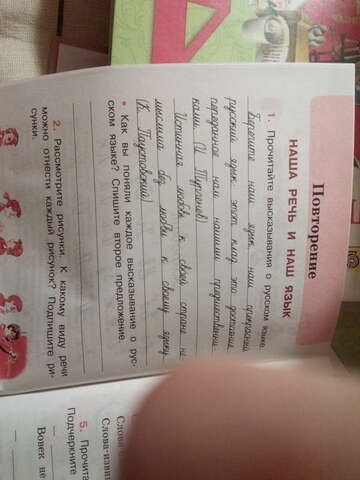 Повторение
НАША РЕЧЬ И НАШ ЯЗЫК
1. Прочитайте высказывания о русском языке.
Берегите наш язык, наш прекрасный
русский язык, этот клад, это достояние,
переданное нам нашими предшественни-
ками. (И. Тургенев)
Истинная любовь к своей стране не
мыслима без любви к своему языку.
(К. Паустовский)
• Как вы поняли каждое высказывание о рус-
ском языке? Спишите второе предложение.
2. Рассмотрите рисунки. К какому виду речи
можно отнести каждый рисунок? Подпишите ри-
сунки.
Слова
Слова-извин
5. Прочита
Подчеркните
Вовек не